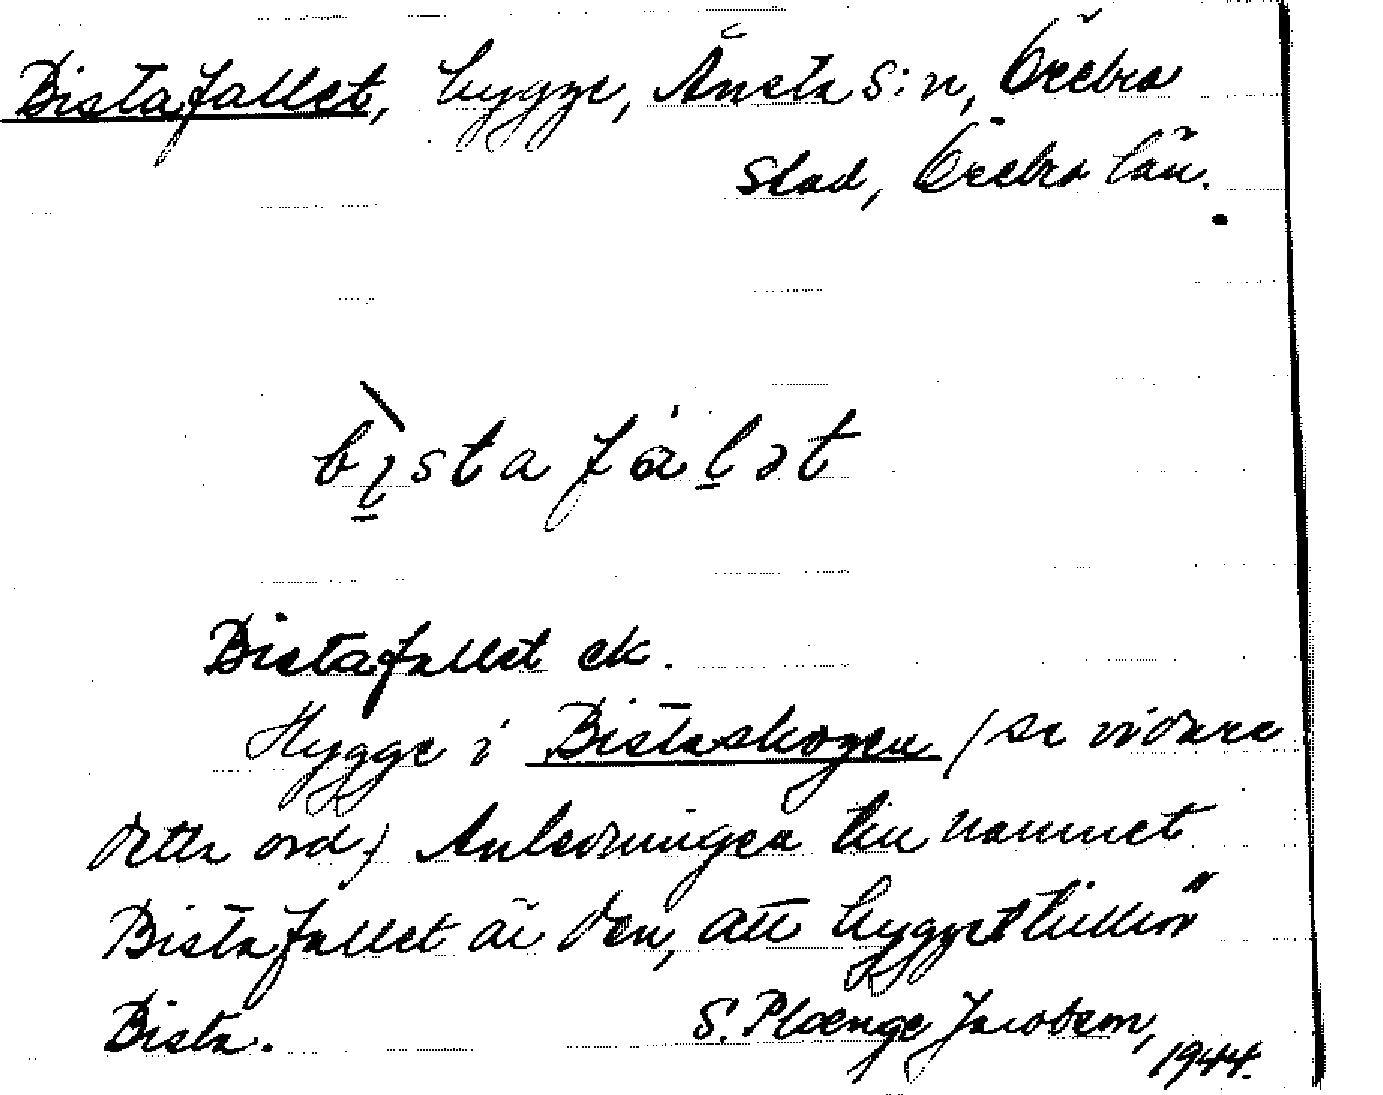 Bistafallet, hygge, Ånsta s:n, Örebro
stad, Örebro län.
bìstafàlət
Bistafallet ek.
Hygge i Bistaskogen (se vidare
detta ord) Anledningen till namnet
Bistafallet är den, att hygget tillhör
Bista. S. Plænge Jacobson,
1944.